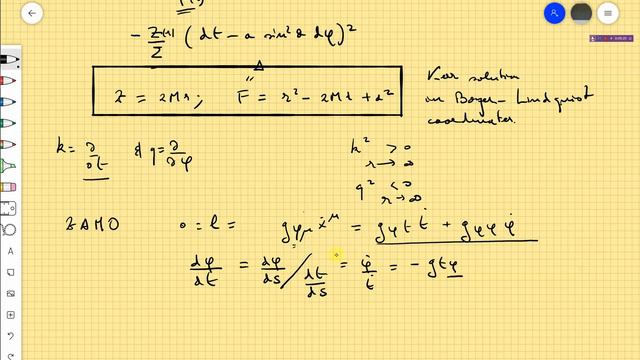 - Z(r)/Σ (dt - a sin²θ dφ)²
Z = 2Mr; F = r² - 2Mr + a²
Δ "
Kerr solution
in Boyer-Lindquist
coordinates.
k = ∂/∂t & q = ∂/∂φ
k² > 0
r → ∞
q² < 0
r → ∞
ZAMO 0 = l = gφμ ẋ^μ = gφt ṫ + gφφ φ̇
dφ/dt = dφ/ds / dt/ds = φ̇/ṫ = - gtφ